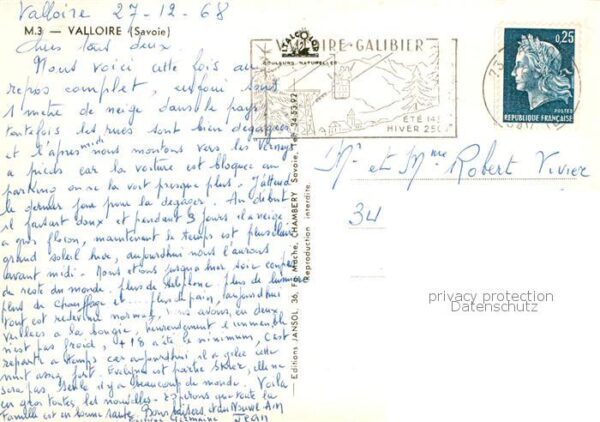 Valloire 27-12-68
M.3 — VALLOIRE (Savoie)
Chers tous deux.
Nous voici cette fois au
repos complet, enfoui sous
1 mètre de neige dans le pays
toutefois les rues sont bien dégagées
et l'après midi nous montons vers les Verneys
à pieds car la voiture est bloquée au
parking on ne la voit presque plus. J'attend
le dernier jour pour la dégager. Au début
il faisait doux et pendant 3 jours il a neigé
a gros flocon, maintenant le temps est
grand soleil hier, aujourd'hui nous l'aurons
avant midi. Nous étions jusqu'a hier soir coupés
du reste du monde. plus de téléphone, plus de lumière
plus de chauffage et... plus de pain, aujourd'hui
tout est redevenu normal, nous avons eu deux
veillées a la bougie, heureusement l'immeuble
n'est pas froid, + 18 a été le minimum, c'est
reparti a temps car aujourd'hui il a gelé cette
nuit assez fort. Evelyne est partie skier, elle ne
sera pas seule il y a beaucoup de monde. Voila
en gros toutes les nouvelles. Espérons que toute la
famille est en bonne santé. Bons baisers et du Nouvel An
Evelyne Germaine Jean
ITALCOLOR
COULEURS NATURELLES
VALLOIRE-GALIBIER
ÉTÉ 14
HIVER 25
0,25
POSTES
REPUBLIQUE FRANÇAISE
Editions JANSOL, 36, Fg Maché, CHAMBERY Savoie, Tél. 34-55-92
Reproduction interdite.
Mr et Mme Robert Vivier
34
privacy protection
Datenschutz